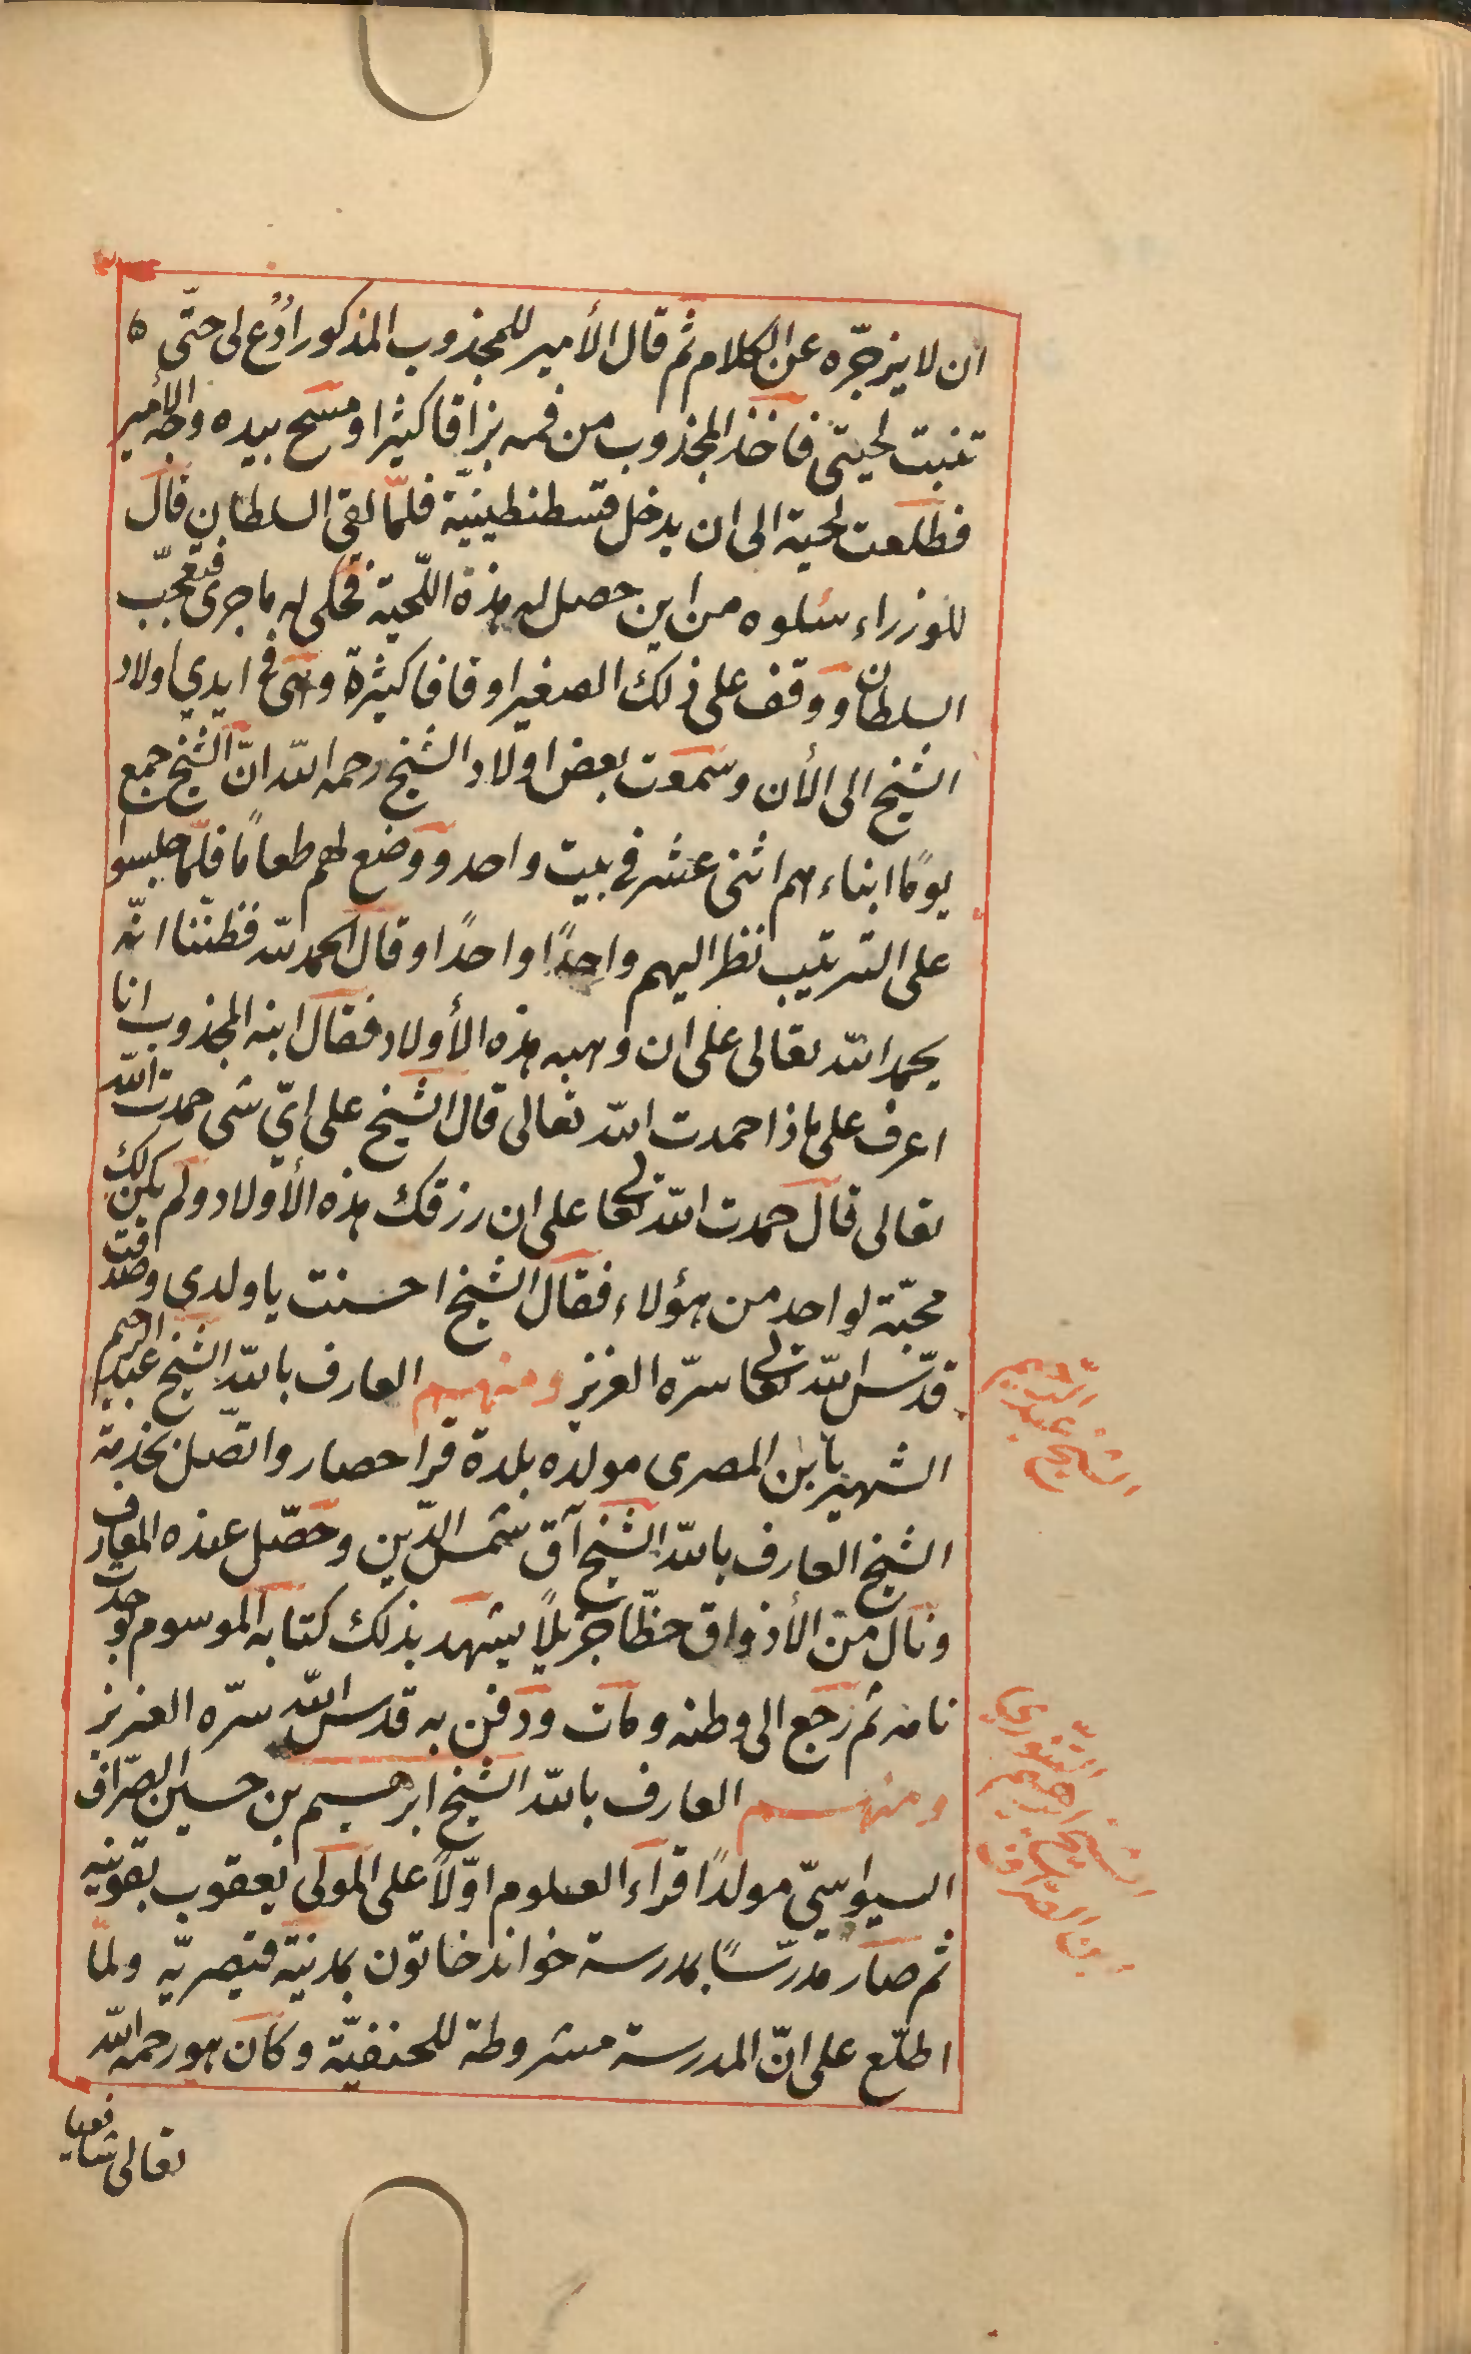 ان لا يزجرّه عن الكلام ثم قال الأمير للمجذوب المذكور اُدْعُ لى حتّى
تنبت لحيتى فاخذ المجذوب من فمه بزاقا كثيرا ومسح بيده وجه الأمير
فطلعت لحية الى ان يدخل قسطنطينيّة فلمّا لقى السلطان قال
للوزراء سئلوه من اين حصل له هذه اللّحية فحكى له ما جرى فتعجّب
السلطان ووقف على ذلك الصغير اوقافا كثيرة وهى فى ايدي اولاد
الشيخ الى الأن وسمعت بعض اولاد الشيخ رحمه الله انّ الشيخ جمع
يومًا ابناءهم اثنى عشر فى بيت واحد ووضع لهم طعامًا فلمّا جلسوا
على الترتيب نظر اليهم واحدًا واحدًا وقال الحمد لله فظننا انّه
يحمد الله تعالى على ان وهبه هذه الأولاد فقال ابنه المجذوب انا
اعرف على ماذا حمدت الله تعالى قال الشيخ على ايّ شى حمدت الله
تعالى قال حمدت الله تعالى على ان رزقك هذه الأولاد ولم يكن لك
محبّة لواحد من هؤلاء فقال الشيخ احسنت يا ولدى وصدقت
قدّس الله تعالى سرّه العزيز ومنهم العارف بالله الشيخ عبد الرحيم
الشهير بابن المصرى مولده بلدة قرا حصار واتّصل بخدمة
الشيخ العارف بالله الشيخ آق شمس الدّين وحصّل عنده المعارف
ونال من الأذواق حظّا جزيلاً يشهد بذلك كتابه الموسوم بوحدت
نامه ثم رجع الى وطنه ومات ودفن به قدس الله سرّه العزيز
ومنهم العارف بالله الشيخ ابرهيم بن حسين الصرّاف
السيواسيّ مولدًا قراء العلوم اوّلاً على المولى يعقوب بقونيه
ثم صار مدرّسًا بمدرسة خواند خاتون بمدينة قيصريّه ولمّا
اطلّع على انّ المدرسة مشروطة للحنفيّة وكان هو رحمه الله
تعالى شافعيا
الشيخ عبد الرّحيم
الشيخ ابراهيم التنّورى
بن الصرّاف